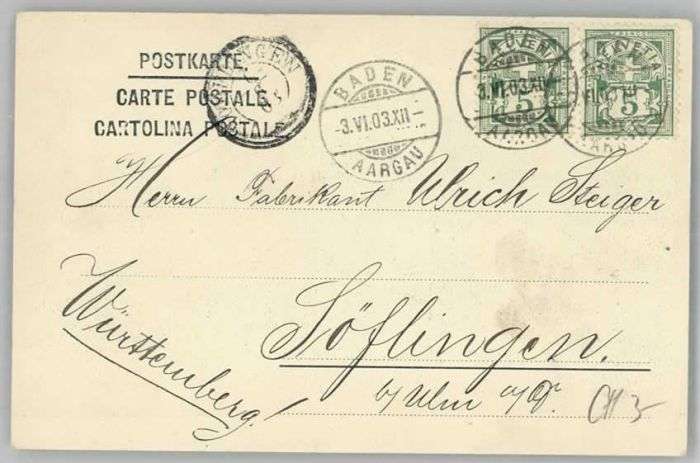 POSTKARTE.
CARTE POSTALE.
CARTOLINA POSTALE
BADEN
-3.VI.03.XII-
AARGAU
BADEN
-3.VI.03.XII-
AARGAU
5
HELVETIA
5
Herrn Fabrikant Ulrich Steiger
Söflingen.
b/Ulm a/D.
Württemberg.